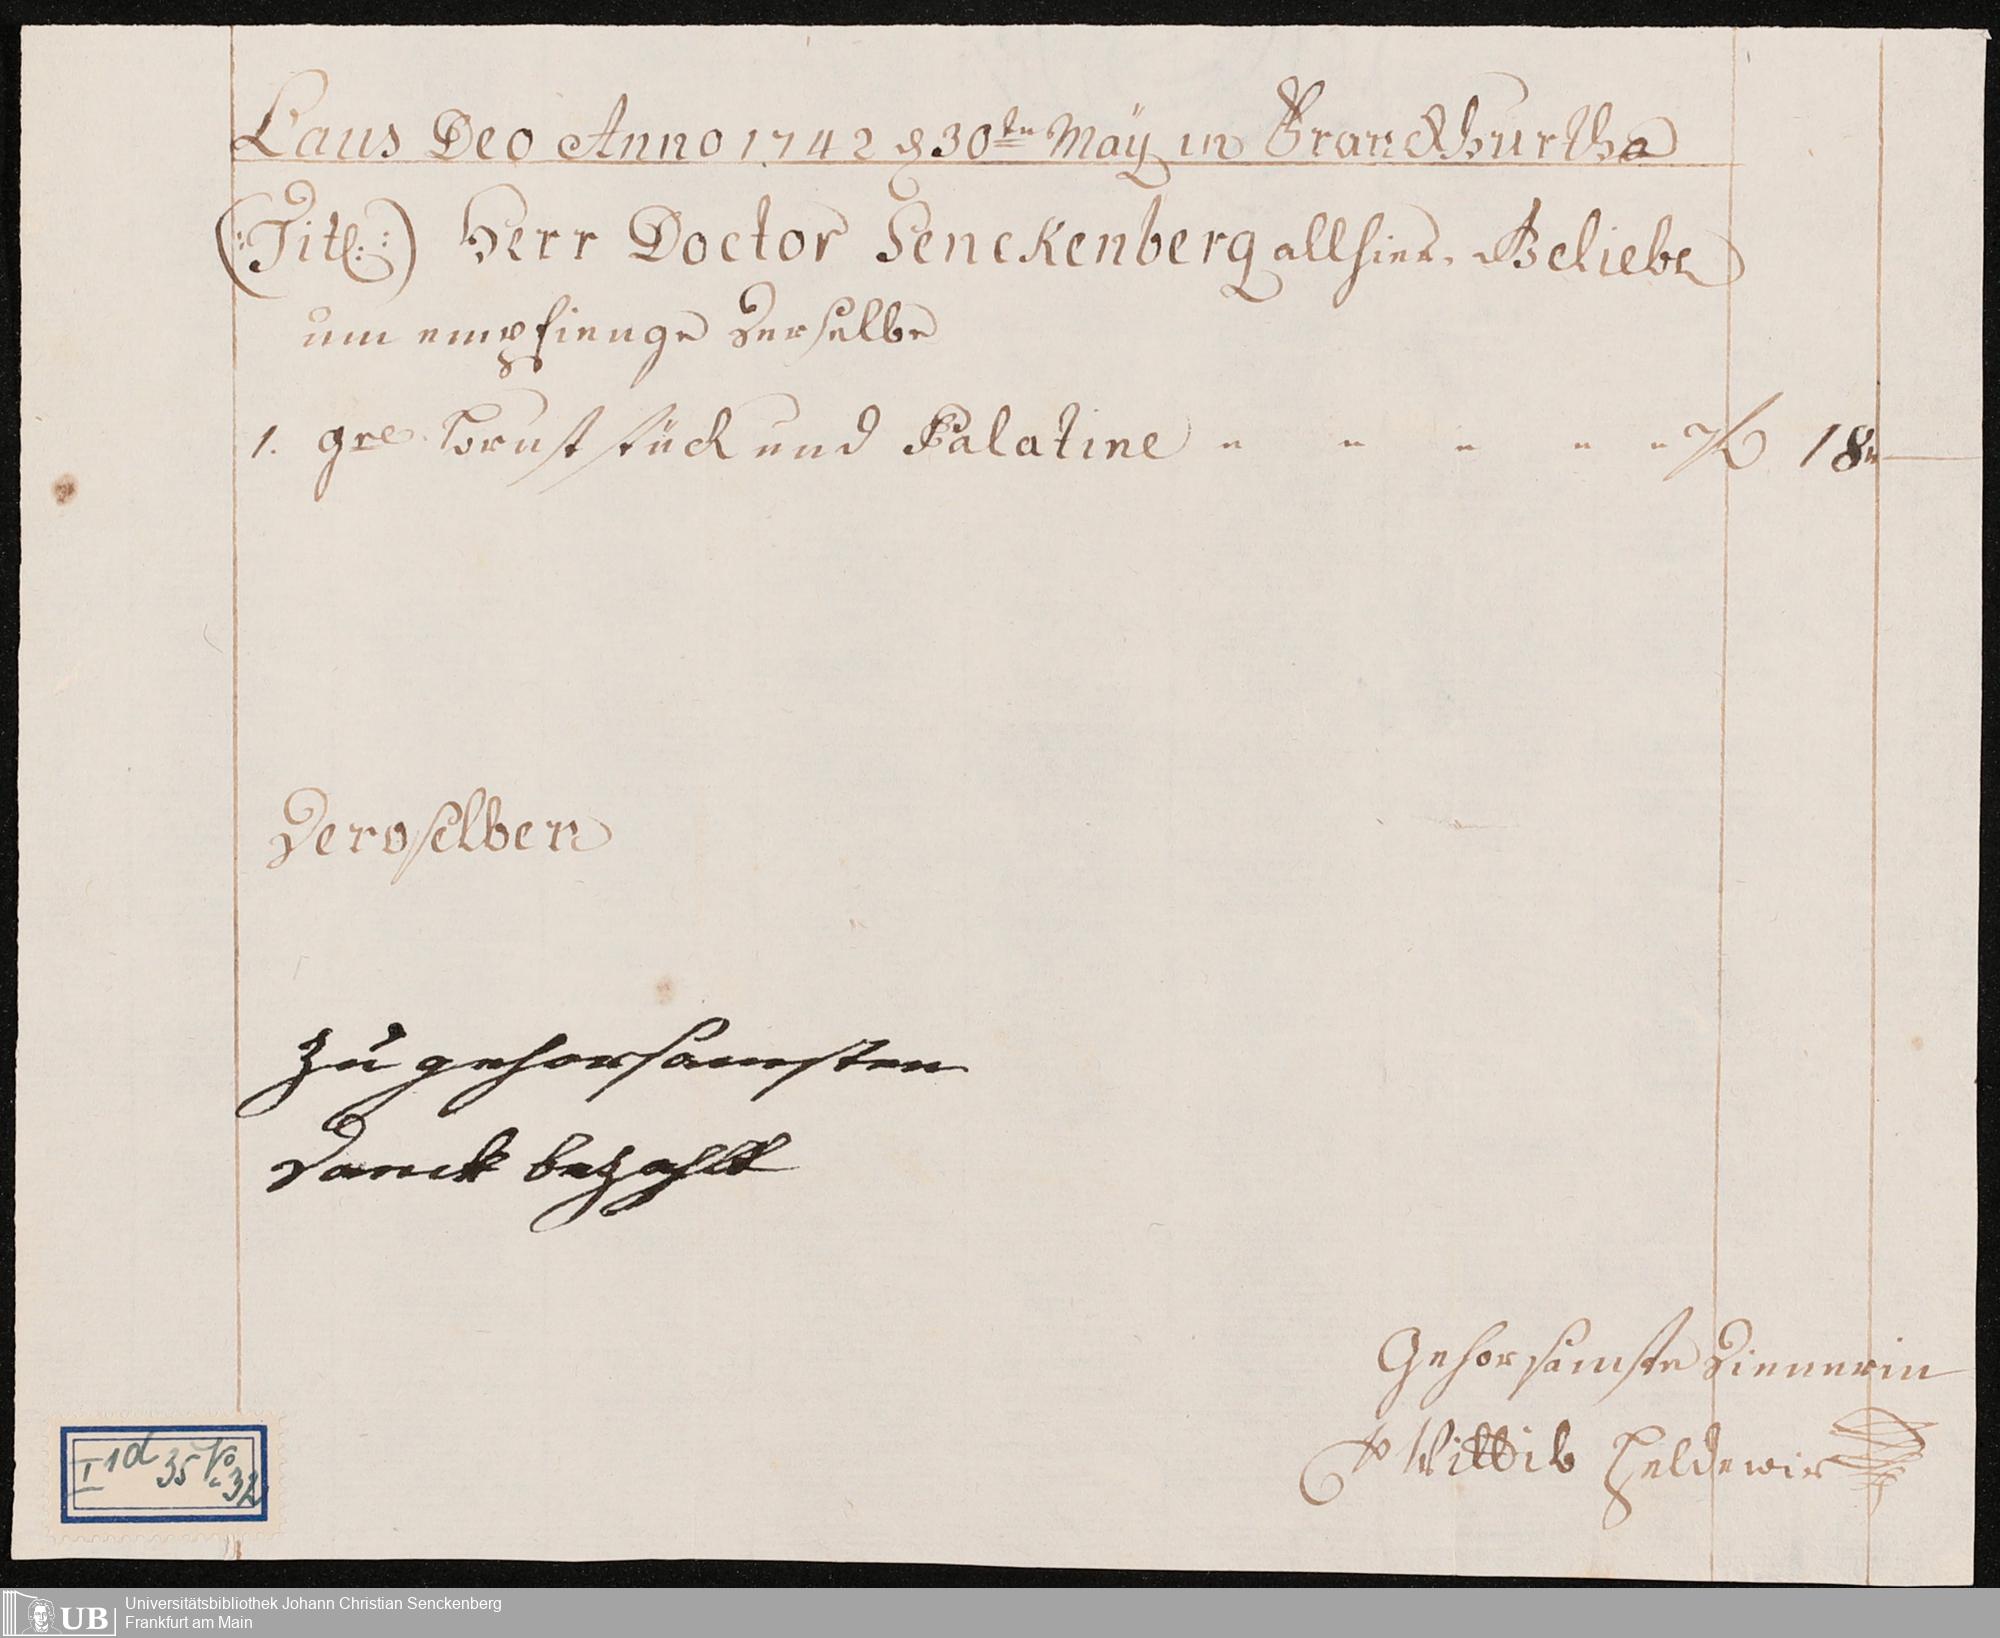 Laus Deo Anno 1742 d 30ten Maÿ in Franckfurth a
(:Titl:) Herr Doctor Senckenberg allhier, Beliebe
um empfienge Derselbe
1. gre Brust stück und Palatine " " " " " f 18 "
Deroselben
Zu gehorsamsten
Danck bezahlt
Gehorsamste Dienerin
Wittib Heldewir
I 1d 35 No 32
UB Universitätsbibliothek Johann Christian Senckenberg
Frankfurt am Main